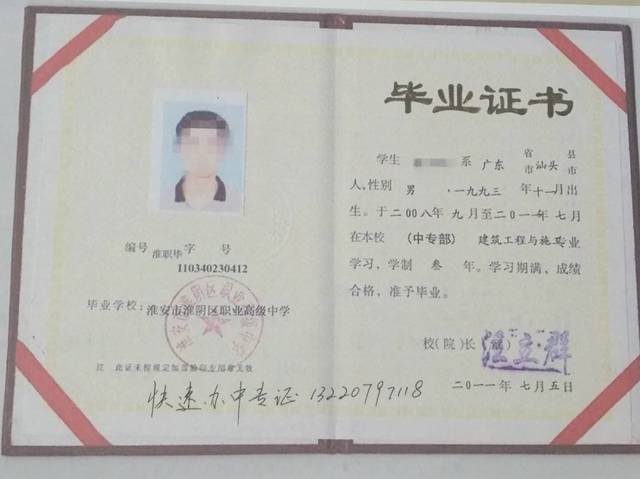 编号 淮职毕字 号
110340230412
毕业学校：淮安市淮阴区职业高级中学
淮安市淮阴区职业高级中学
注 此证未按规定加盖验印专用章无效
毕业证书
学生 系 广东 省市 汕头 县市
人,性别 男 ,一九九三 年十一月出
生。于二00八年 九月至二0一一年 七月
在本校 (中专部) 建筑工程与施工专业
学习，学制 叁 年。学习期满，成绩
合格，准予毕业。
校(院)长 汪立群
二0一一年 七月五日
快速办中专证 13220797118